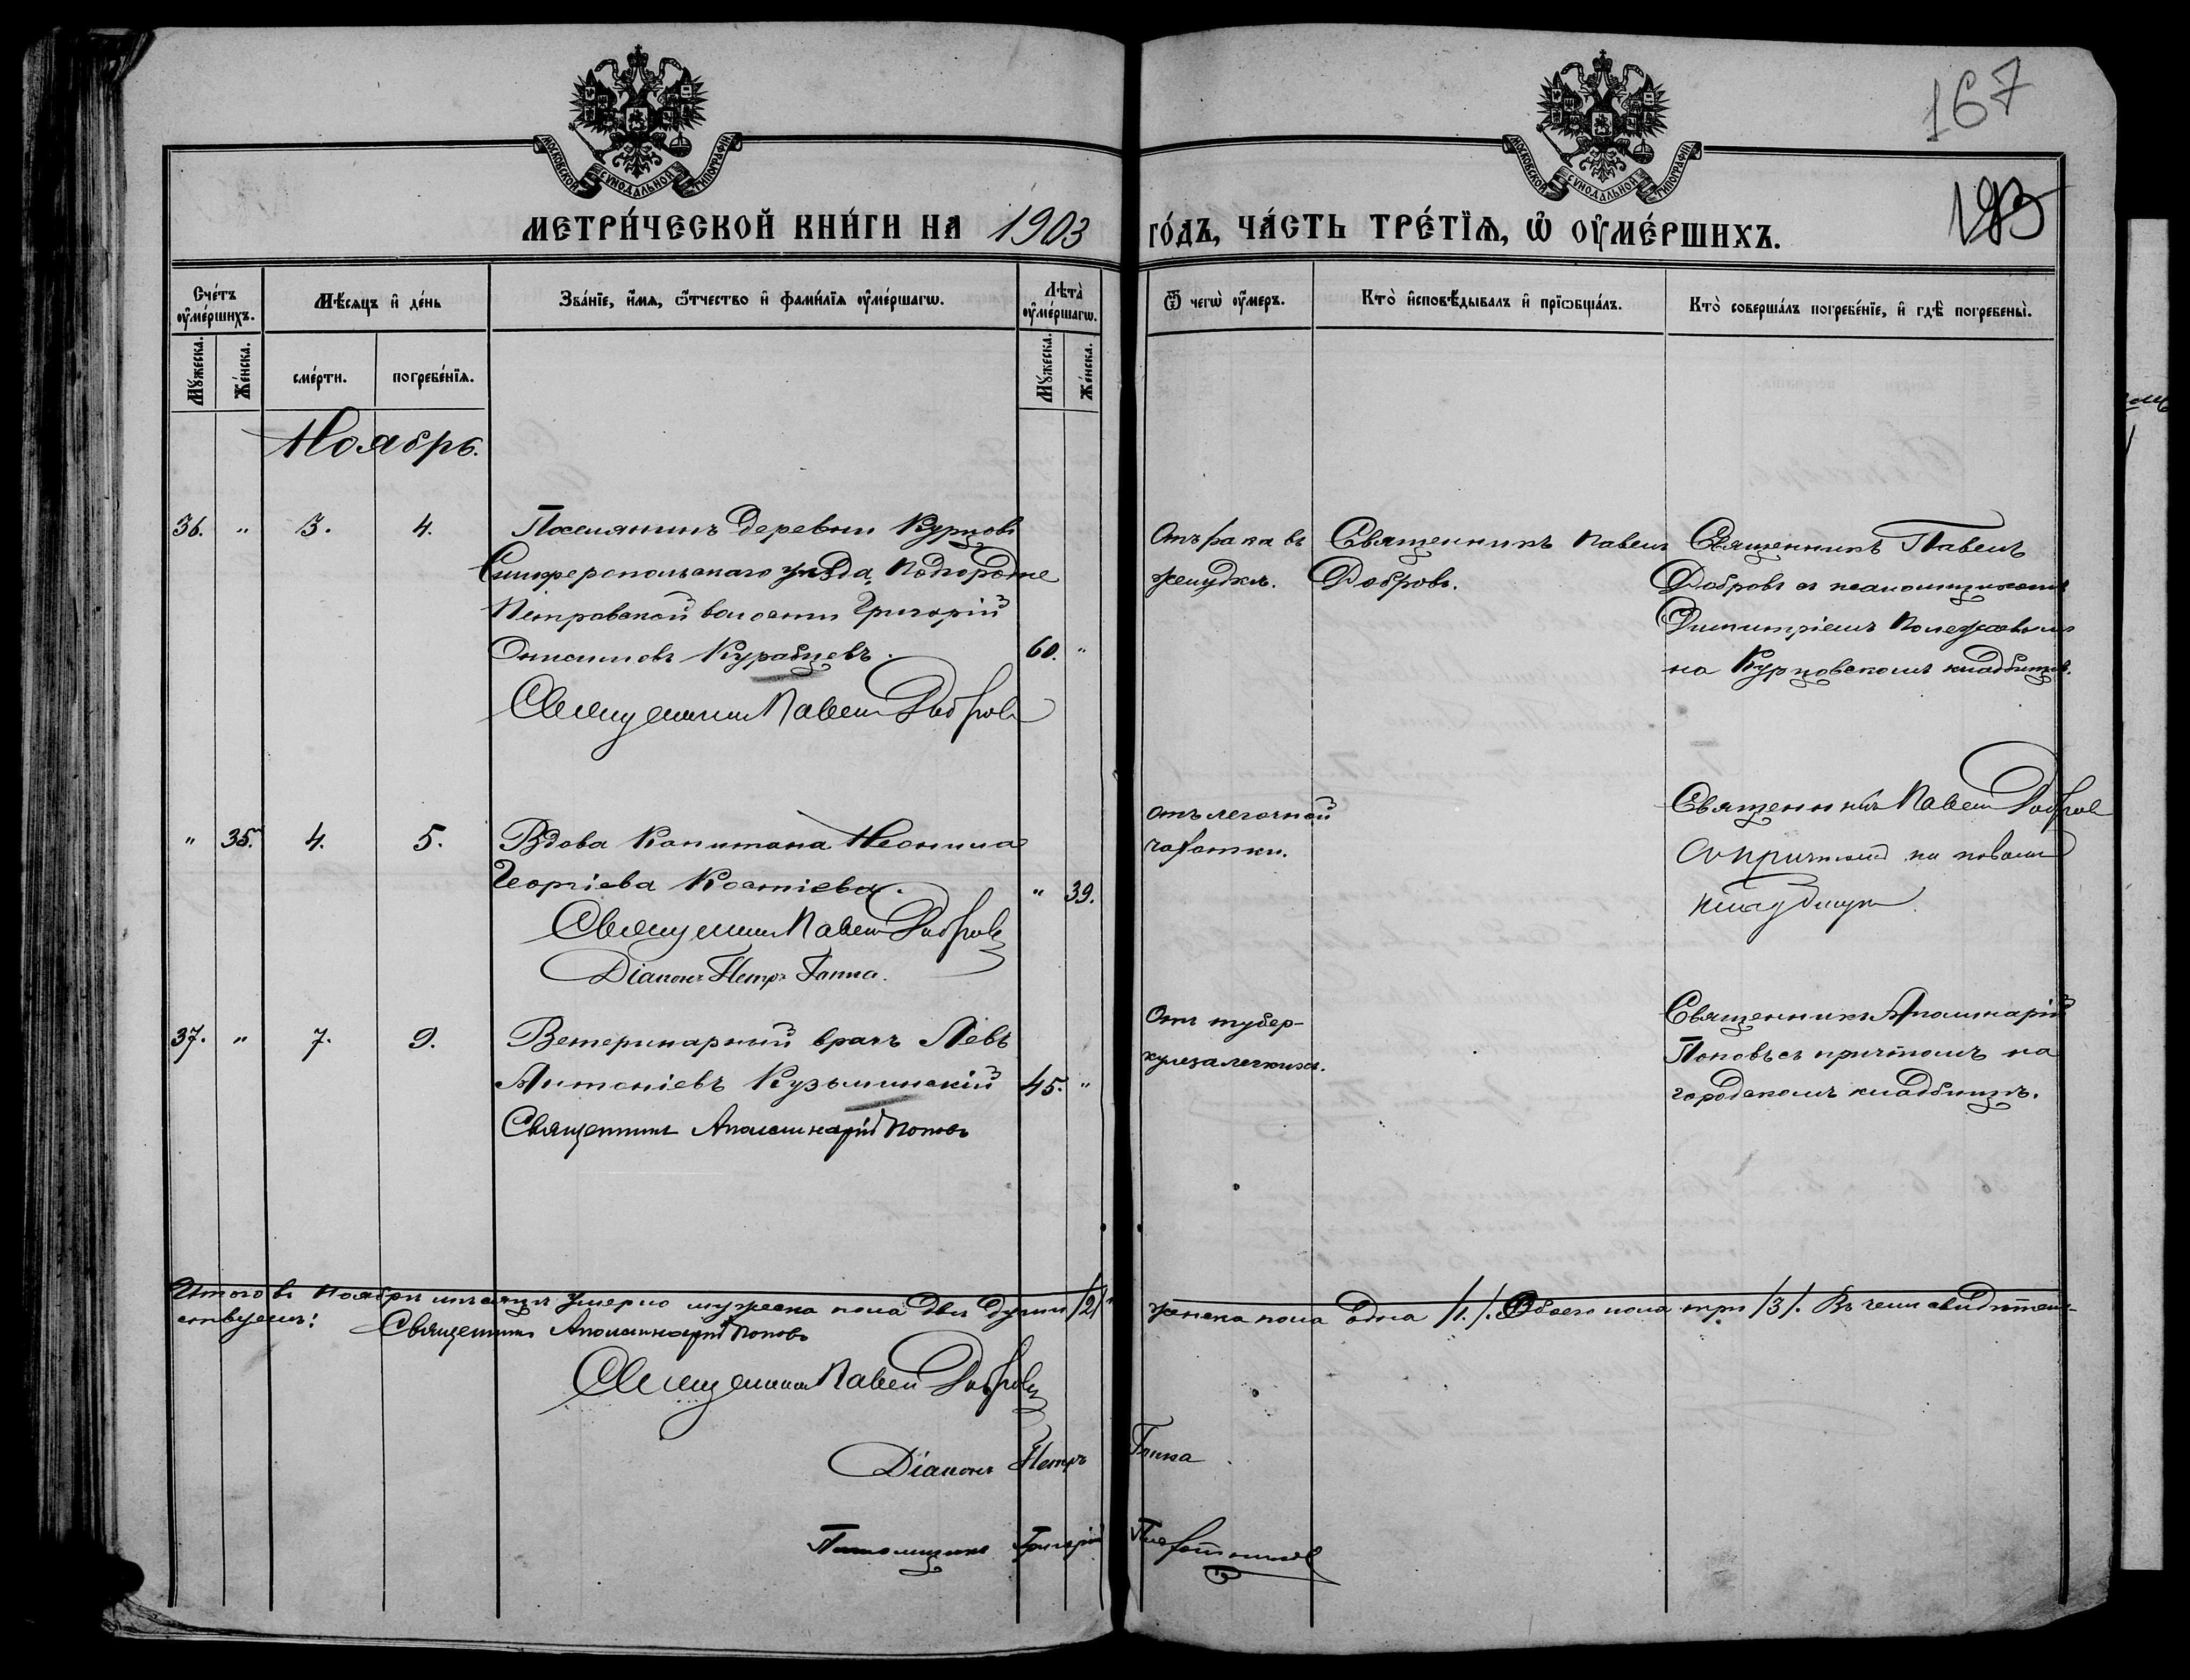 МОСКОВСКОЙ СУНОДАЛЬНОЙ ТИПОГРАФІИ
МОСКОВСКОЙ СУНОДАЛЬНОЙ ТИПОГРАФІИ
167
193
МЕТРИ́ЧЕСКОЙ КНИ́ГИ НА 1903 ГО́ДЪ, ЧА́СТЬ ТРЕ́ТЇѦ, Ѡ҆ ОУ҆МЕ́РШИХЪ.
Сче́тъ оу҆ме́ршихъ.
Мѣ́сяцъ и҆ де́нь
Зва́нїе, и҆́мя, ѻ҆́тчество и҆ фами́лїя оу҆ме́ршагѡ.
Лѣ́та оу҆ме́ршагѡ.
Ѿ чегѡ̀ оу҆́меръ.
Кто̀ и҆сповѣ́дывалъ и҆ прїѻбща́лъ.
Кто̀ соверша́лъ погребе́нїе, и҆ гдѣ̀ погребены̀.
Мꙋ́жеска.
Же́нска.
сме́рти.
погребе́нїя.
Мꙋ́жеска.
Же́нска.
Ноябрь.
36. " 3. 4. Поселянинъ деревни Курцовъ
Симферопольскаго уѣзда, Подгородне
Петровской волости Григорій
Онисимовъ Курабцевъ. 60. "
Священникъ Павелъ Добровъ
Отъ рака въ
желудкѣ.
Священникъ Павелъ
Добровъ.
Священникъ Павелъ
Добровъ съ псаломщикомъ
Димитріемъ Полежаевымъ
на Курцовскомъ кладбищѣ.
" 35. 4. 5. Вдова Капитана Неонила
Георгіева Костіева. " 39.
Священникъ Павелъ Добровъ
Діаконъ Петръ Ганка.
отъ легочной
чахотки.
Священникъ Павелъ Добровъ
съ причтомъ на новомъ
кладбищѣ
37. " 7. 9. Ветеринарный врачъ Левъ
Антоніевъ Кузьминскій 45. "
Священникъ Аполлинарій Поповъ
Отъ тубер-
кулеза легкихъ.
Священникъ Аполинарій
Поповъ съ причтомъ на
городскомъ кладбищѣ.
Итого въ Ноябрѣ мѣсяцѣ умерло мужеска пола двѣ души /2/ женска пола одна /1./. Обоего пола три /3/. Въ чемъ свидѣтель-
ствуемъ: Священникъ Аполлинарій Поповъ
Священникъ Павелъ Добровъ
Діаконъ Петръ Ганка
Псаломщикъ Григорій